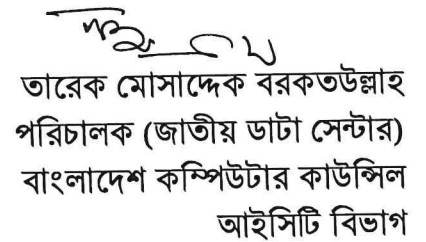 তারেক মোসাদ্দেক বরকতউল্লাহ
পরিচালক (জাতীয় ডাটা সেন্টার)
বাংলাদেশ কম্পিউটার কাউন্সিল
আইসিটি বিভাগ